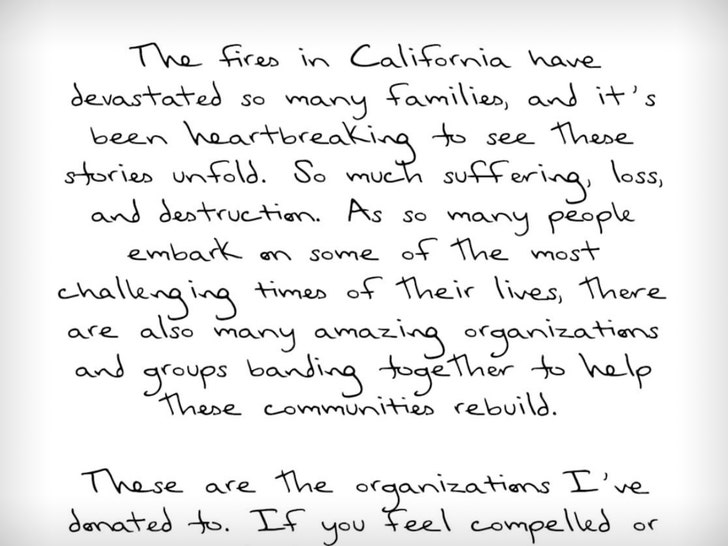 The fires in California have
devastated so many families, and it's
been heartbreaking to see these
stories unfold. So much suffering, loss,
and destruction. As so many people
embark on some of the most
challenging times of their lives, there
are also many amazing organizations
and groups banding together to help
these communities rebuild.
These are the organizations I've
donated to. If you feel compelled or